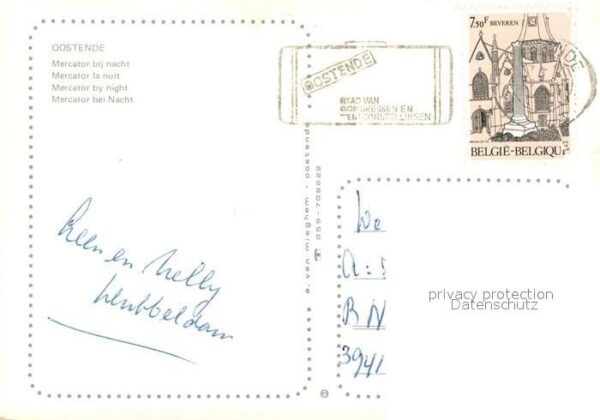 OOSTENDE
Mercator bij nacht
Mercator la nuit
Mercator by night
Mercator bei Nacht
7.50F BEVEREN
OOSTENDE
STAD VAN
CONGRESSEN EN
TENTOONSTELLINGEN
BELGIË-BELGIQUE
a. van mieghem - oostende
059-708622
Keen en Nelly
We
A:
B N
3941
privacy protection
Datenschutz